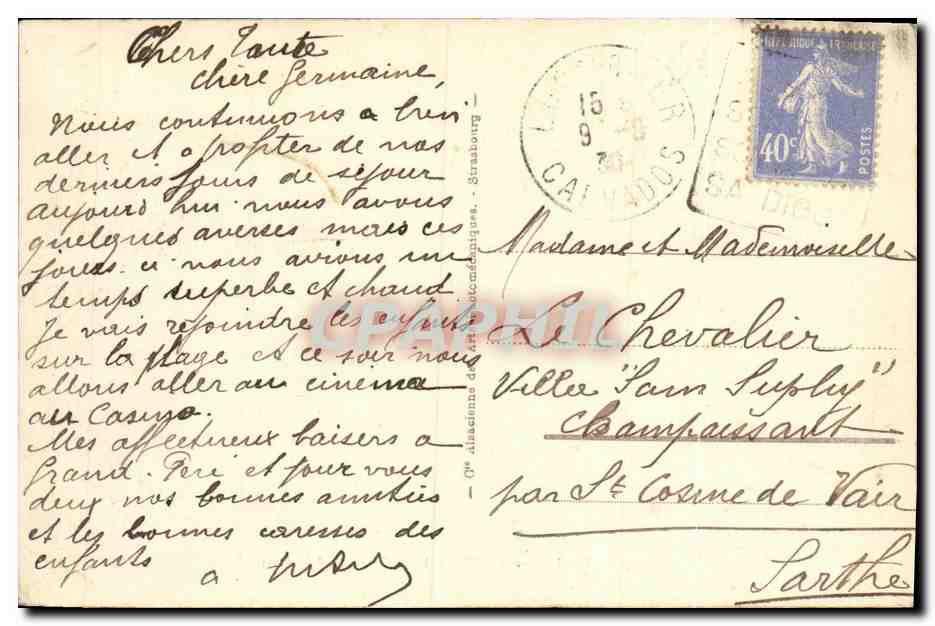 Chers Tante
chère Germaine,
Nous continuons a bien
aller et a profiter de nos
derniers jours de séjour
aujourd'hui nous avons
quelques averses mais ces
jours ci nous avions un
temps superbe et chaud
Je vais rejoindre les enfants
sur la plage et ce soir nous
allons aller au cinéma
au Casino.
Mes affectueux baisers a
Grand-Père et pour vous
deux nos bonnes amitiés
et les bonnes caresses des
enfants
Cie Alsacienne des Arts Photomécaniques. - Strasbourg
CALVADOS
15
9
30
RÉPUBLIQUE FRANÇAISE
40c
POSTES
Madame et Mademoiselle
Le Chevalier
Villa "Sam Suphy"
Champaissant
par St Cosme de Vair
Sarthe
CPAPHIL